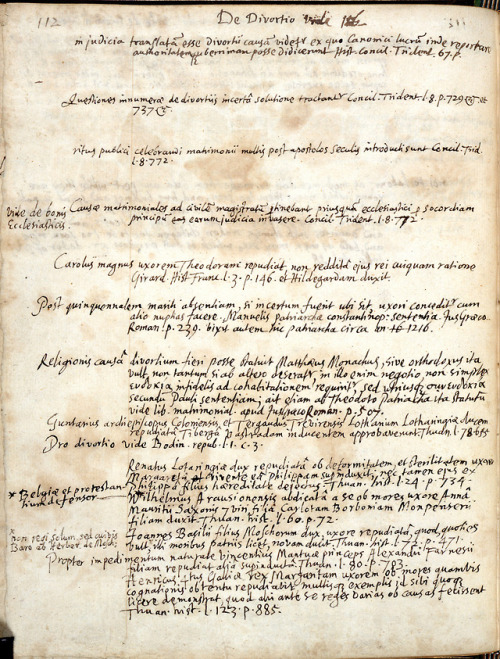 112
De Divortio vide
in judicia translatā esse divortii causā videtr ex quo Canonici lucrū inde reportari
authoritatemq̨ uberrimam posse didicerunt Hist. Concil. Trident. 67. p.
Quæstiones innumeræ de divortiis incertâ solutione tractantr Concil. Trident. l. 8. p. 729 &c
737 &c.
ritus publici celebrandi matrimonii multis post apostolos seculis introducti sunt Concil. Trid.
l. 8. 772.
vide de bonis
Ecclesiasticis.
Causæ matrimoniales ad civilē magistratū ptinebant priusquā ecclesiastici p socordiam
principū eas earum judicia invasere. Concil Trident. l. 8. 772.
Carolus magnus uxorem Theodoram repudiat, non redditâ ejus rei cuiquam ratione
Girard. Hist. Franc. l. 3. p. 146. et Hildegardam duxit.
Post quinquennalem mariti absentiam, si incertum fuerit ubi sit, uxori conceditr cum
alio nuptias facere. Manuelis patriarchæ constantinop: sententia. Jus Græco
Roman: p. 239. vixit autem hic patriarcha circa an. 1216.
Religionis causâ divortium fieri posse statuit Matthæus Monachus, sive orthodoxus ita
vult, non tantum si ab altero deseratr, in illo enim negotio non simplex
εὐδοκια infidelis ad cohabitationem requiritr, sed utriusq̨ συνευδοκια
secundū Pauli sententiam; ait etiam ab Theodoto Patriarcha ita statutū
vide lib. matrimonial. apud Jus Græco Roman. p. 507.
Guntarius archiepiscopus Coloniensis, et Tergaudus Trevirensis Lotharium Lotharingiæ ducem
repudiatâ Tibergâ Valdradam inducentem approbaverunt. Thuan. l. 78
Pro divortio vide Bodin. repub. l. 1. c. 3.
Renatus Lotaringiæ dux repudiatâ ob deformitatem, et sterilitatem uxore
Margaretâ Philippam superinduxit, nec tamen ejus ex
Philippâ filius hæreditate dejectus. Thuan. hist. l. 24. p. 734.
* Belgiæ et protestan-
tium defensor.
Wilhelmus Arausionensis abdicatâ a se ob mores uxore Annâ
Mauritii Saxonis 7viri filiâ Carlotam Borboniam Monpenserii
filiam duxit Thuan. hist. l. 60. p. 72.
* non rex solum sed quivis
Baro ab Herberstein
Joannes Basilii filius Moschorum dux, uxore repudiatâ, quod quoties
vult, illi moribus patriis licet, novam ducit Thuan. hist. l. 72. p. 471.
Propter impedimentum naturale Vincentius Mantuæ princeps Alexandri Farnesii
filiam repudiat aliâ supinductâ Thuan. l. 80. p. 783.
Henricus 4tus Galliæ rex Margaritam uxorem ob mores quamvis
cognationis obtentu repudiabit multisq̨ exemplis id sibi quoq̨
licere demonstrat quod alii ante se reges varias ob causas fecissent
Thuan. hist. l. 123. p. 885.